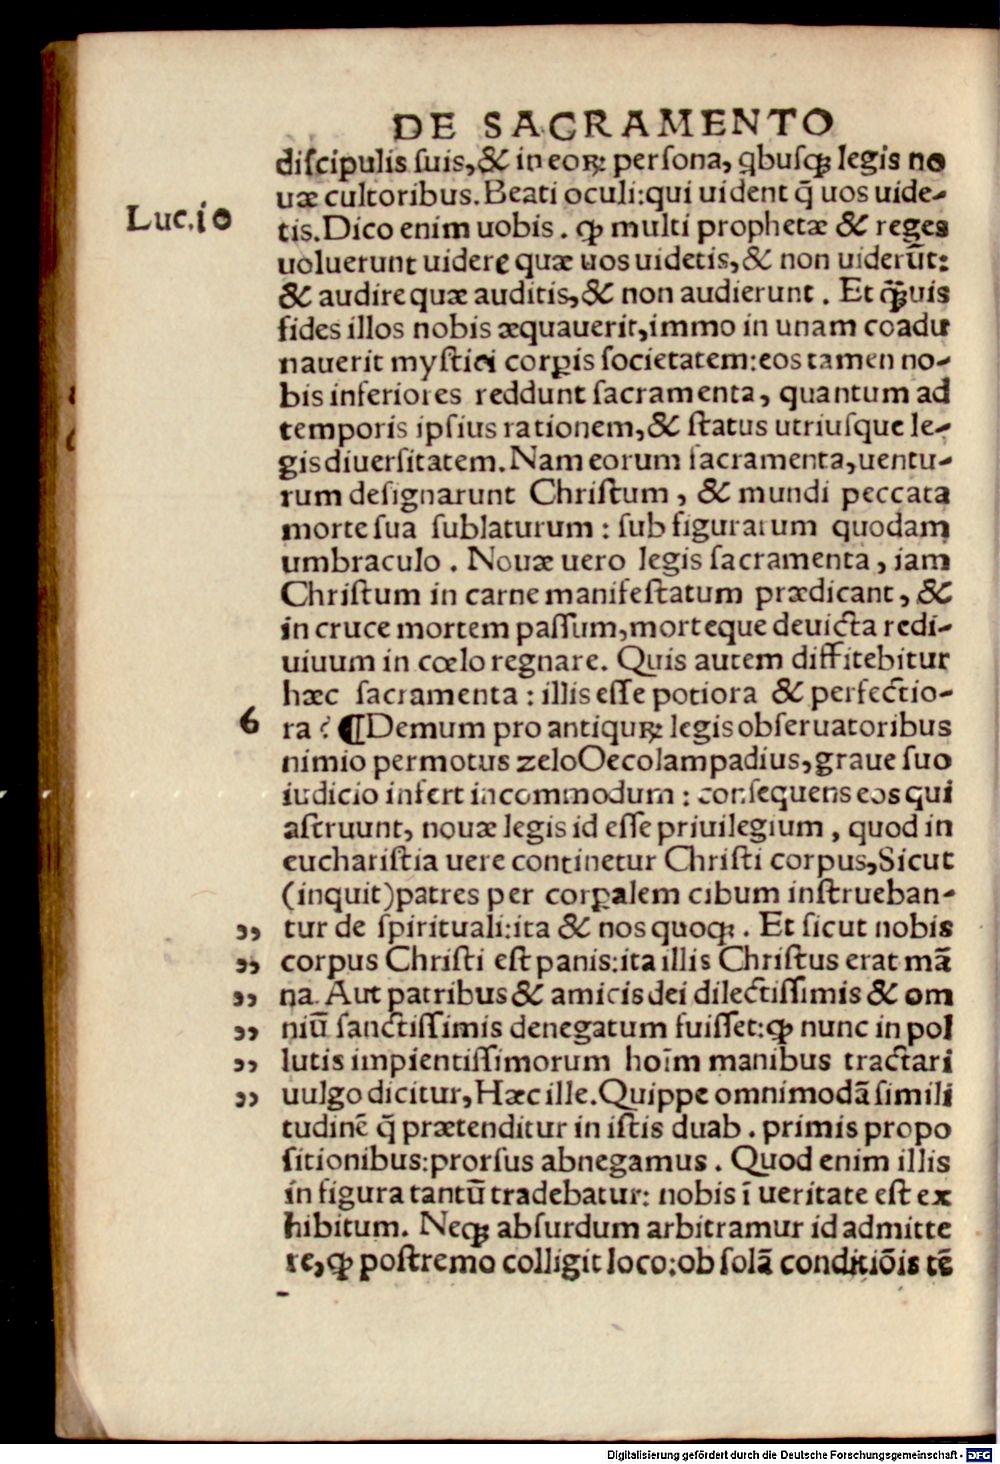 DE SACRAMENTO
diſcipulis ſuis,& in eoꝝ perſona, qbuſqꝫ legis no
uæ cultoribus.Beati oculi:qui uident q̃ uos uide-
Luc.10
tis.Dico enim uobis . ꝙ multi prophetæ & reges
uoluerunt uidere quæ uos uidetis,& non uiderūt:
& audire quæ auditis,& non audierunt . Et q̃ꝫuis
fides illos nobis æquauerit,immo in unam coadu
nauerit myſtici corꝑis ſocietatem:eos tamen no-
bis inferiores reddunt ſacramenta, quantum ad
temporis ipſius rationem,& ſtatus utriuſque le-
gis diuerſitatem.Nam eorum ſacramenta,uentu-
rum deſignarunt Chriſtum , & mundi peccata
morte ſua ſublaturum : ſub figurarum quodam
umbraculo . Nouæ uero legis ſacramenta , iam
Chriſtum in carne manifeſtatum prædicant , &
in cruce mortem paſſum,morteque deuicta redi-
uiuum in cœlo regnare. Quis autem diffitebitur
hæc ſacramenta : illis eſſe potiora & perfectio-
6
ra ? ¶Demum pro antiquꝝ legis obſeruatoribus
nimio permotus zelo Oecolampadius,graue ſuo
iudicio infert incommodum : conſequens eos qui
aſtruunt, nouæ legis id eſſe priuilegium , quod in
euchariſtia uere continetur Chriſti corpus,Sicut
(inquit)patres per corꝑalem cibum inſtrueban-
,, tur de ſpirituali:ita & nos quoqꝫ . Et ſicut nobis
,, corpus Chriſti eſt panis:ita illis Chriſtus erat mā
,, na. Aut patribus & amicis dei dilectiſſimis & om
,, niū ſanctiſſimis denegatum fuiſſet:ꝙ nunc in pol
,, lutis impientiſſimorum hoīm manibus tractari
,, uulgo dicitur,Hæc ille.Quippe omnimodā ſimili
tudinē q̃ prætenditur in iſtis duab . primis propo
ſitionibus:prorſus abnegamus . Quod enim illis
in figura tantū tradebatur: nobis ī ueritate eſt ex
hibitum. Neqꝫ abſurdum arbitramur id admitte
re,ꝙ poſtremo colligit loco:ob ſolā conditiōis tē
Digitalisierung gefördert durch die Deutsche Forschungsgemeinschaft - DFG